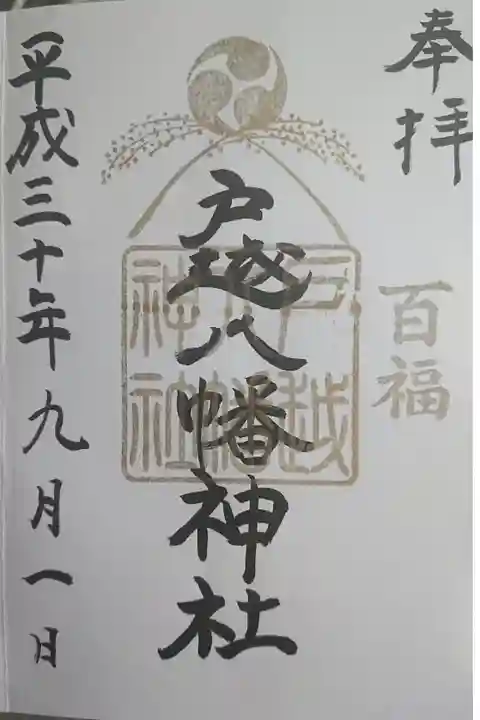 奉拝
百福
戸越八幡神社
戸越八幡神社
平成三十年九月一日